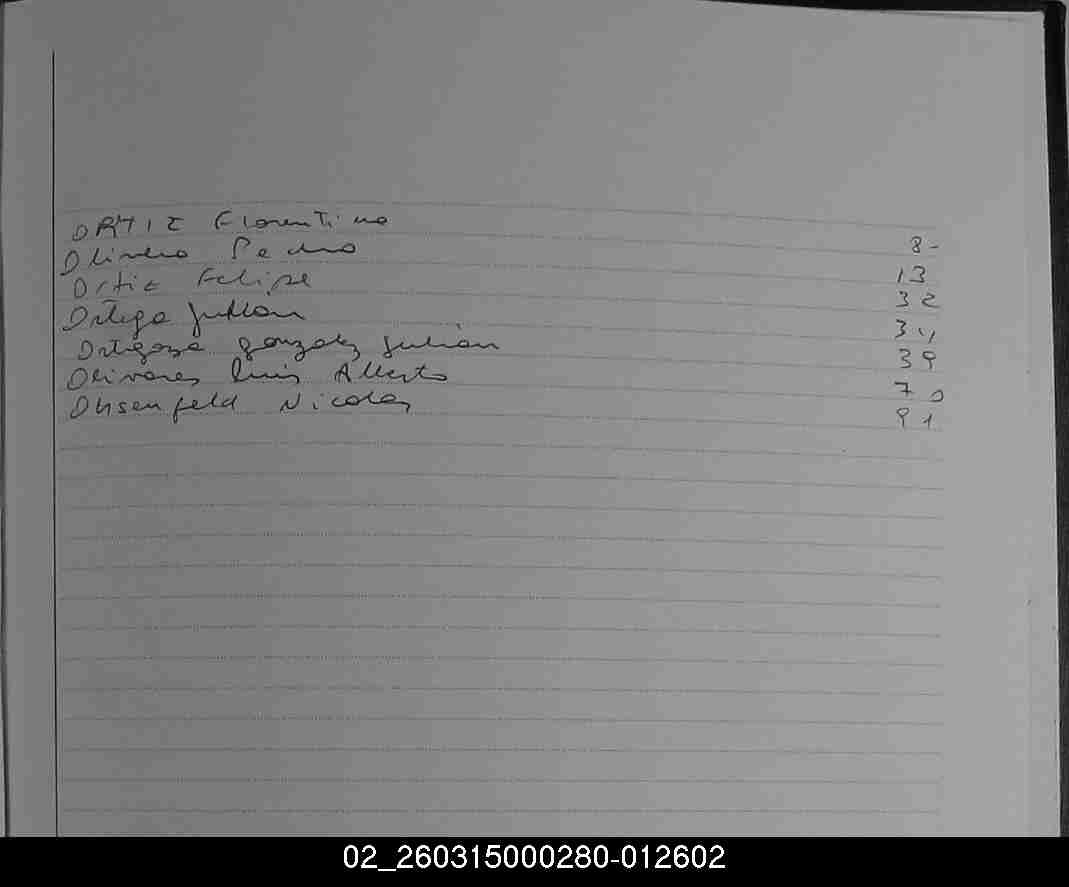 ORTIZ Florentino 8-
Olivero Pedro 13
Ortiz Felipe 32
Ortega Julián 34
Ortigoza gonzalez julian 39
Olivares luis Alberto 70
Ohsenfeld Nicolas 91
02_260315000280-012602